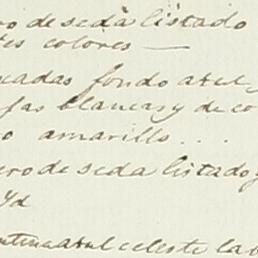 ro de seda listado
tes colores —
cadas fondo azul,
fas blancas y de co
o amarillo...
ero de seda listado y
Yd
ntina azul celeste la b